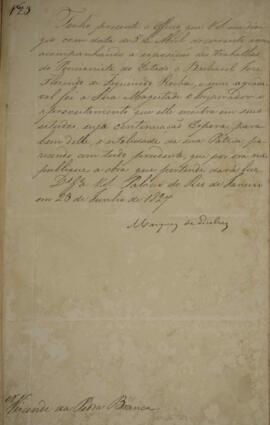 123
Tenho presente o Officio que V. S. me diri-
gio com data de 3 de Abril do corrente anno
acompanhando a exposição dos trabalhos
do Pensionista do Estado o Bacharel José
Florindo de Figueiredo Rocha, e mui agrada-
vel foi a Sua Magestade o Imperador o
aproveitamento que elle mostra em seus
estudos, cuja continuação Espera, para
bem delle, e utilidade de sua Patria, pa-
recendo com tudo prudente, que por ora não
publique a obra que pertende dar á luz.
D.s G.e a V. S. Palacio do Rio de Janeiro
em 23 de Junho de 1827
Marquez de Queluz
Visconde da Pedra Branca